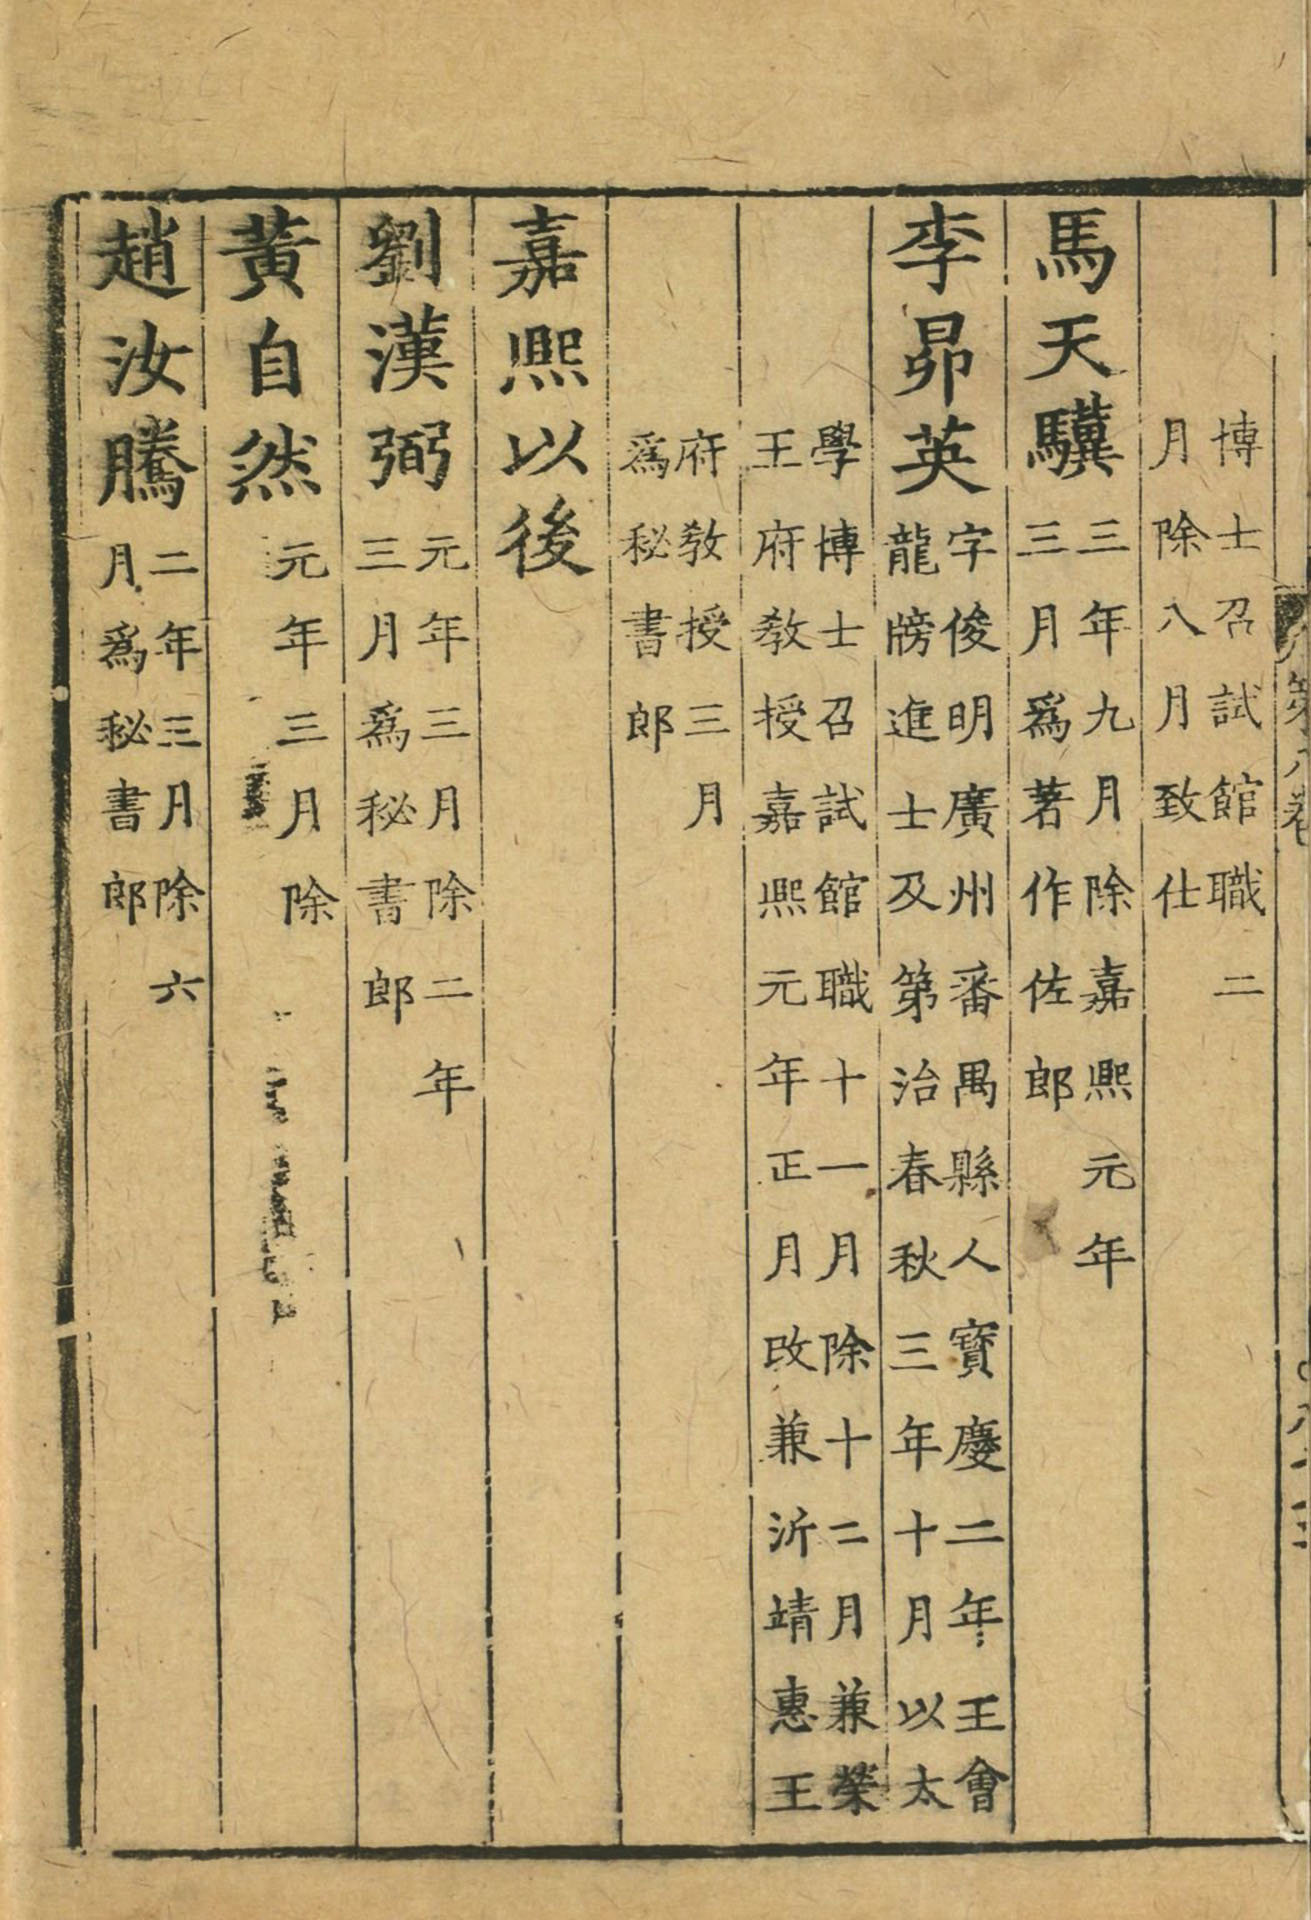 博士召試館職二
月除八月致仕
馬天驥
三年九月除嘉熙元年
三月爲著作佐郎
李昴英
字俊明廣州番禺縣人寶慶二年王會
龍牓進士及第治春秋三年十月以太
學博士召試館職十一月除十二月兼榮
王府教授嘉熙元年正月改兼沂靖惠王
府教授三月
爲秘書郎
嘉熙以後
劉漢弼
元年三月除二年
三月爲秘書郎
黃自然
元年三月除
趙汝騰
二年三月除六
月爲秘書郎